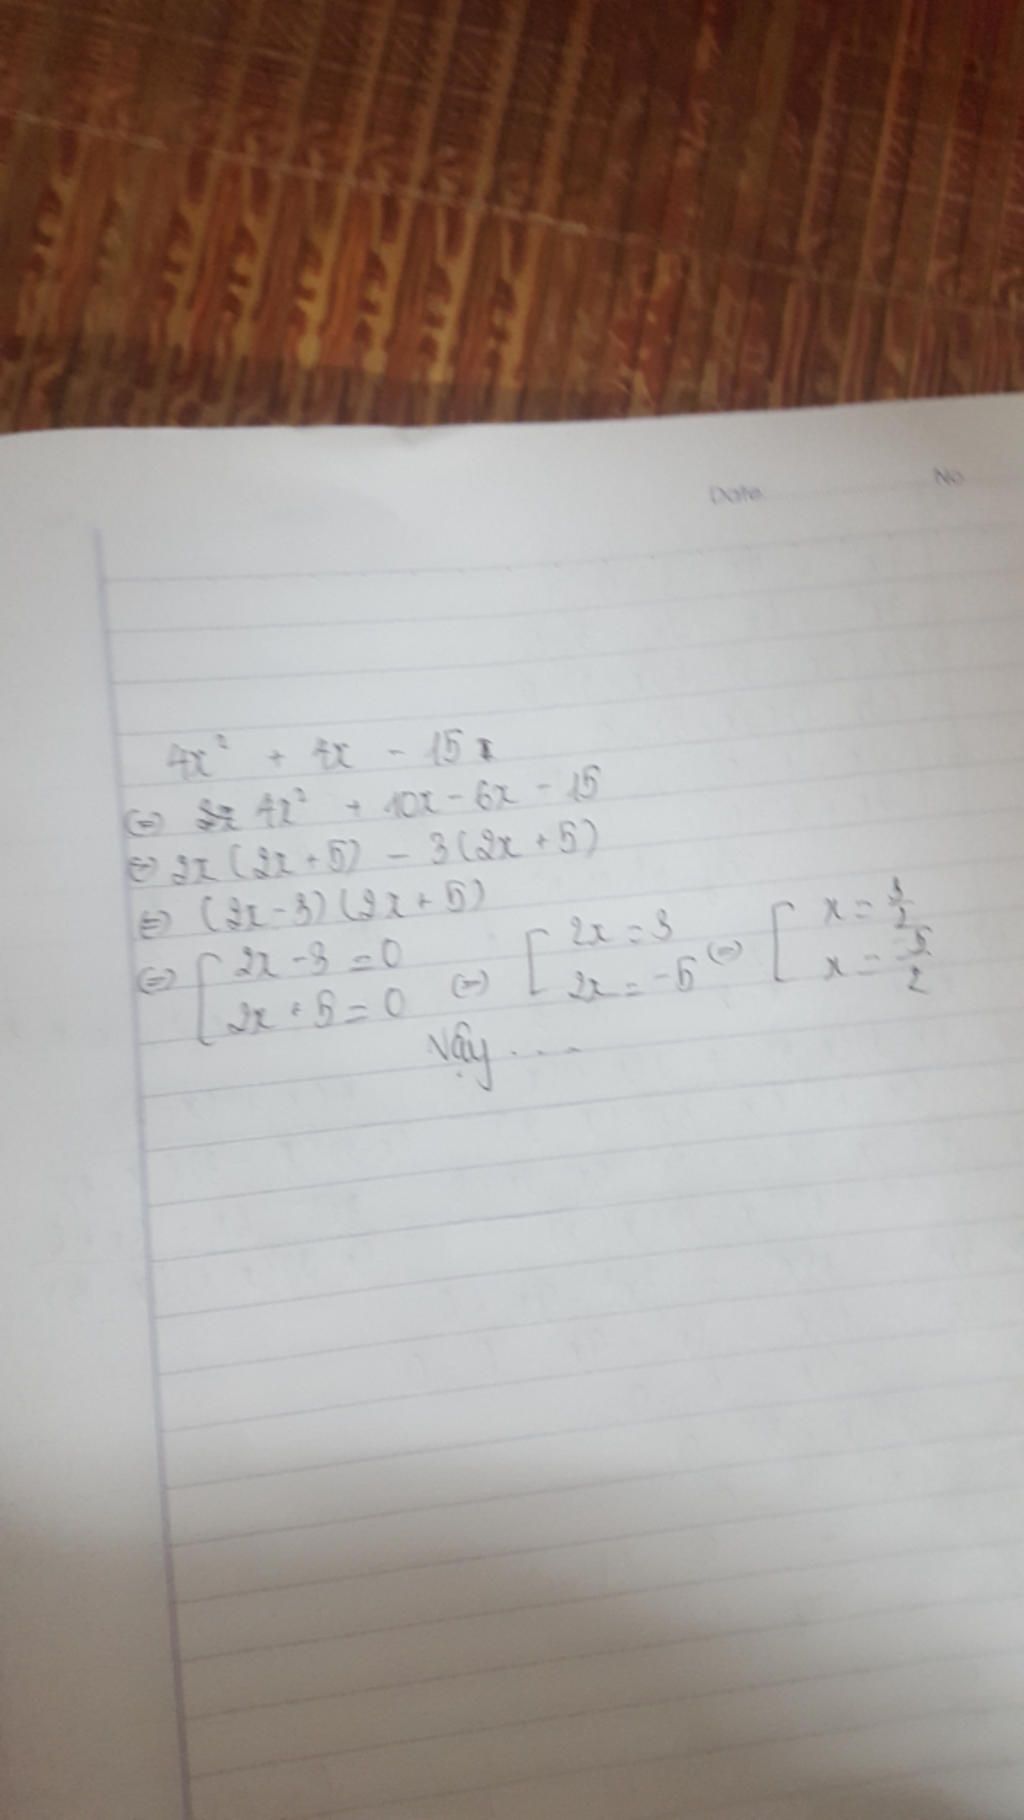 Date No
4x² + 4x - 15
(=) 4x² + 10x - 6x - 15
(=) 2x (2x + 5) - 3 (2x + 5)
(=) (2x - 3) (2x + 5)
(=) [ 2x - 3 = 0 (=) [ 2x = 3 (=) [ x = 3/2
2x + 5 = 0 2x = -5 x = -5/2
Vậy ....